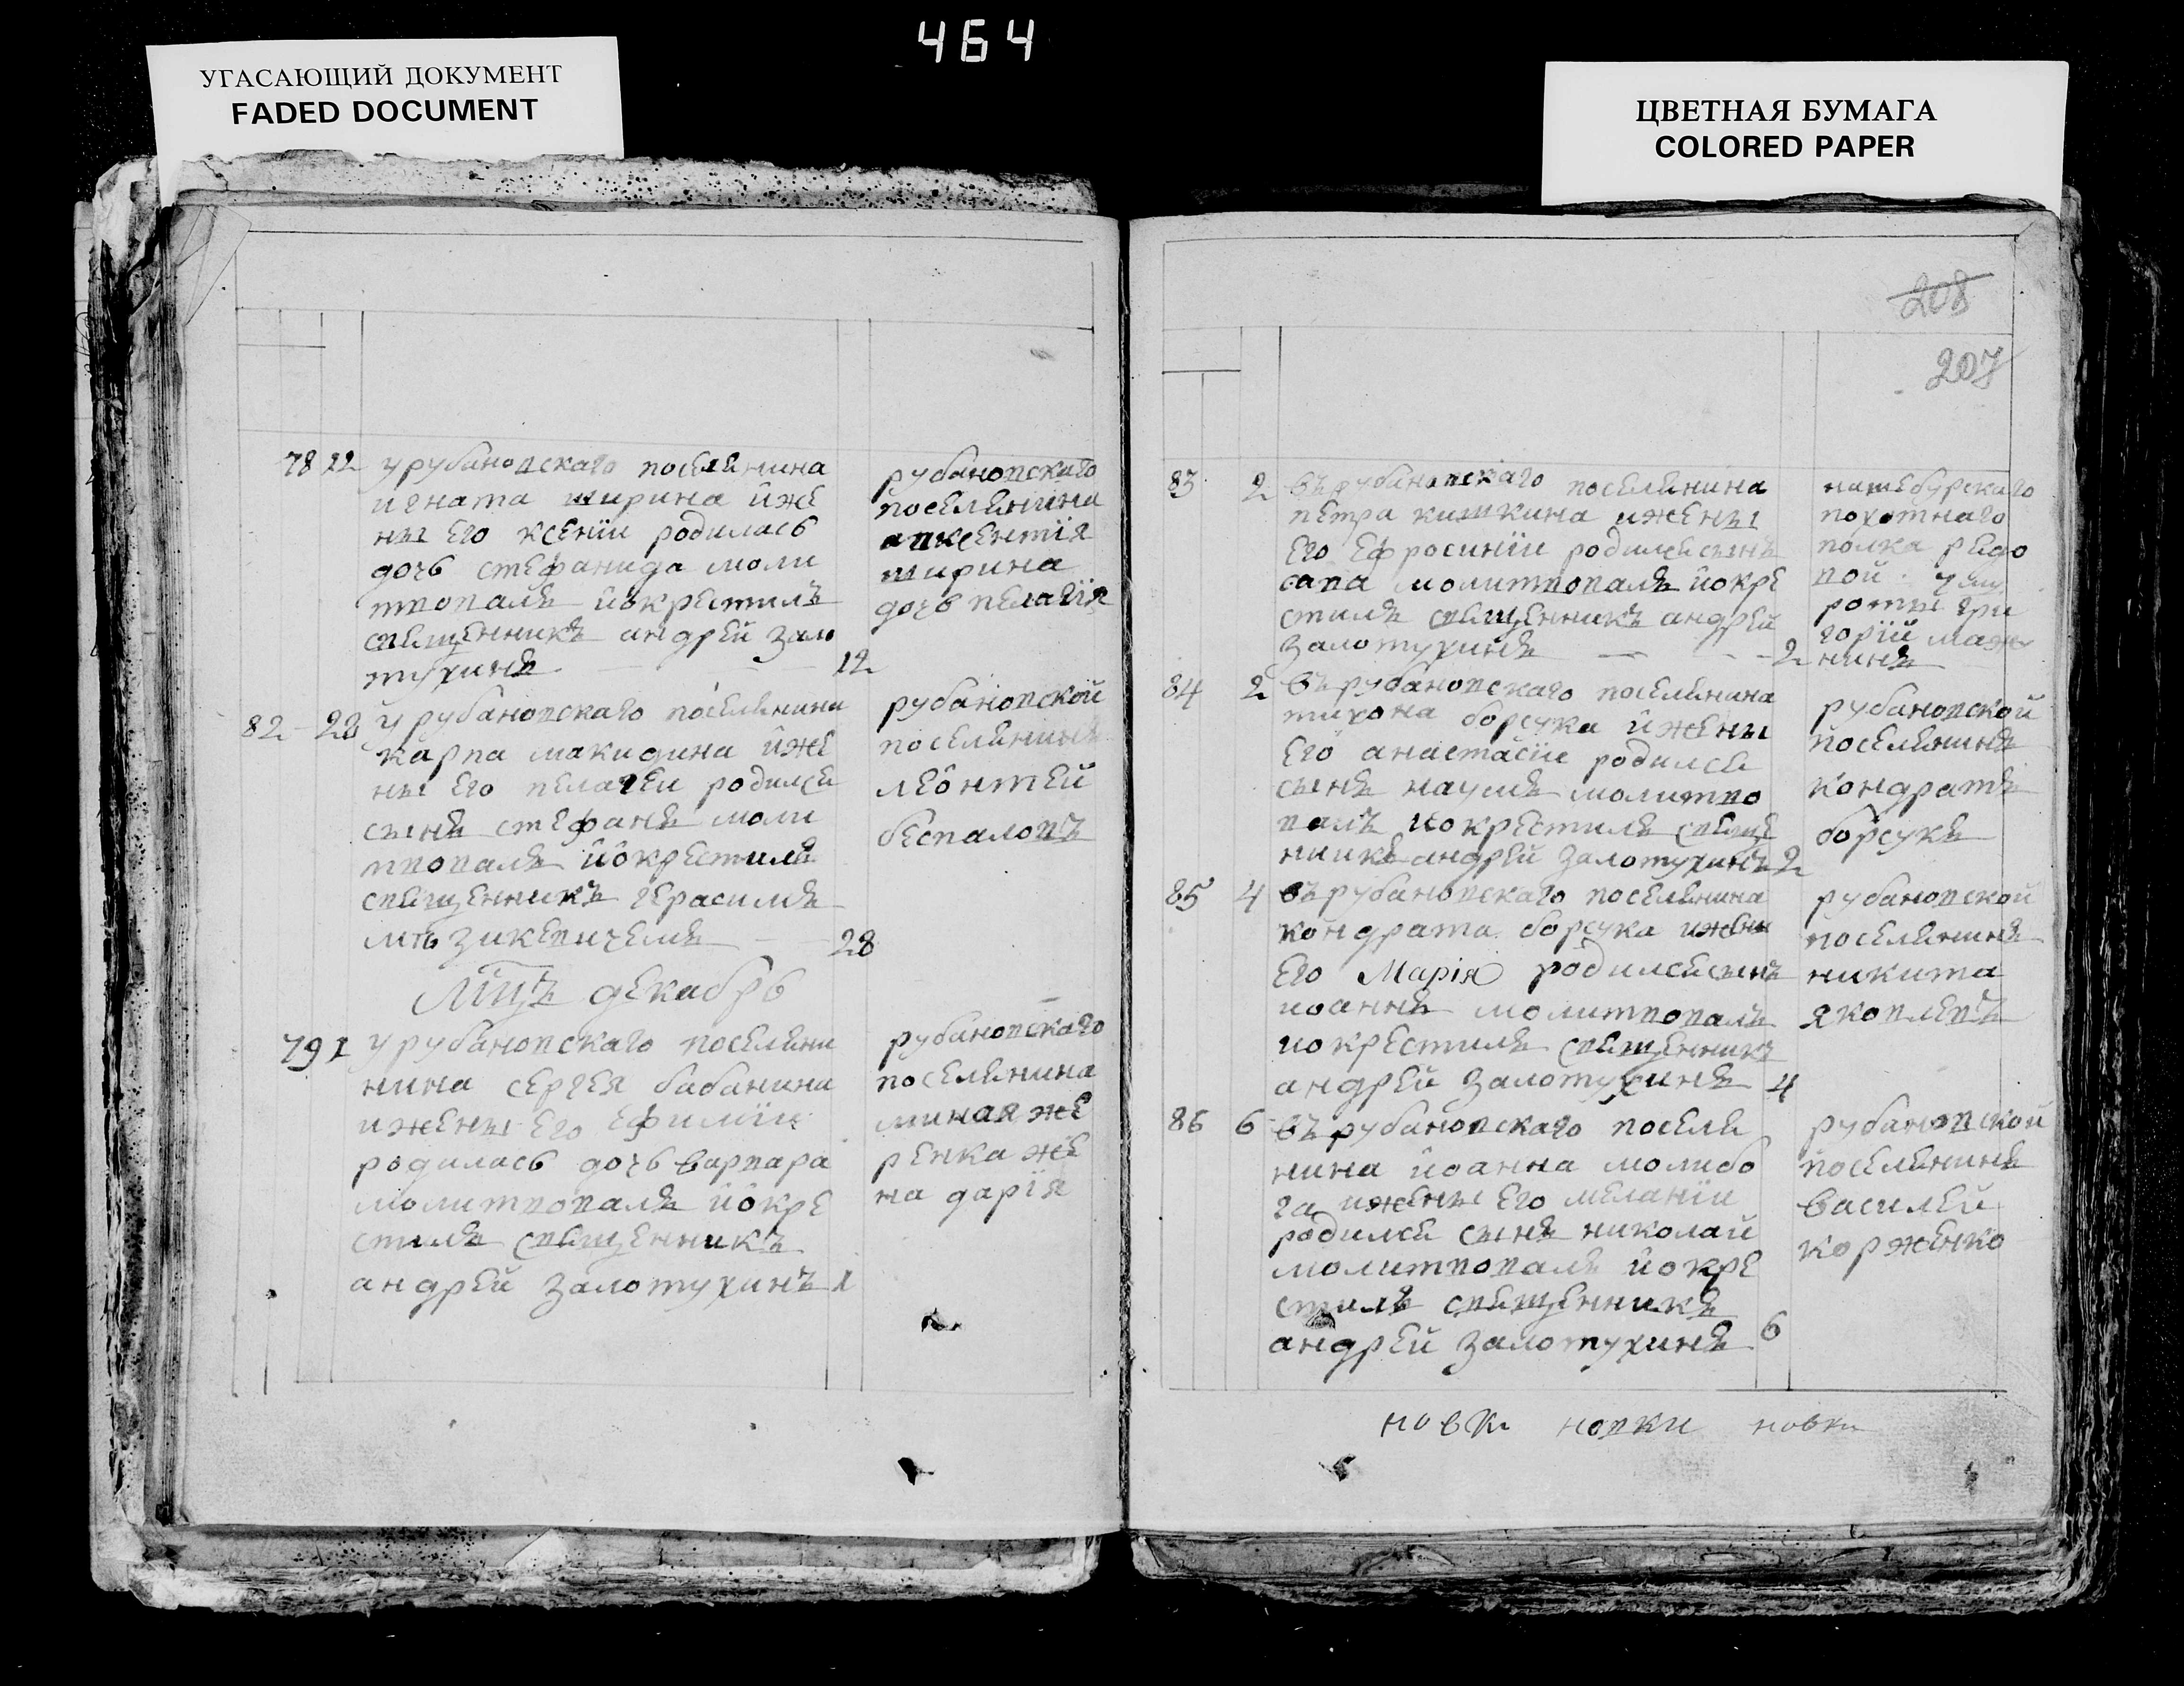 464
УГАСАЮЩИЙ ДОКУМЕНТ
FADED DOCUMENT
ЦВЕТНАЯ БУМАГА
COLORED PAPER
78 12 у рубановскаго поселянина
игната ширина и же
ны его ксении родилась
дочь стефанида моли
твовалъ и окрестилъ
священникъ андрей зало
тухинъ 12
рубановскаго
поселянина
авксентія
ширина
дочь пелагія
82 28 у рубановскаго поселянина
карпа макидина и же
ны его пелагеи родилси
сынъ стефанъ моли
твовалъ и окрестилъ
священникъ герасимъ
28
рубановской
поселянинъ
леонтей
беспаловъ
Мцъ декабрь
79 1 у рубановскаго поселяни
нина сергея бабанина
и жены его ефиміи
родилась дочь варвара
молитвовалъ и окре
стилъ священникъ
андрей залотухинъ 1
рубановскаго
поселянина
миная же
ренка же
на дарія
208
207
83 2 въ рубановскаго поселянина
петра кишкина и жены
его ефросиніи родилси сынъ
сава молитвовалъ и окре
стилъ священникъ андрей
залотухинъ 2
похотнаго
полка редо
вой
роты гри
горій
84 2 въ рубановскаго поселянина
тихона борсука и жены
его анастасіи родилси
сынъ наумъ молитво
валъ и окрестилъ свяще
нникъ андрей залотухинъ 2
рубановской
поселянинъ
кондратъ
борсукъ
85 4 въ рубановскаго поселянина
кондрата борсука и жены
его Марія родилси сынъ
иоаннъ молитвовалъ
и окрестилъ священникъ
андрей залотухинъ 4
рубановской
поселянинъ
никита
яковлевъ
86 6 въ рубановскаго поселя
нина иоанна молибо
га и жены его меланіи
родилси сынъ николай
молитвовалъ и окре
стилъ священникъ
андрей залотухинъ 6
рубановской
поселянинъ
василей
корженко
новки новки новки